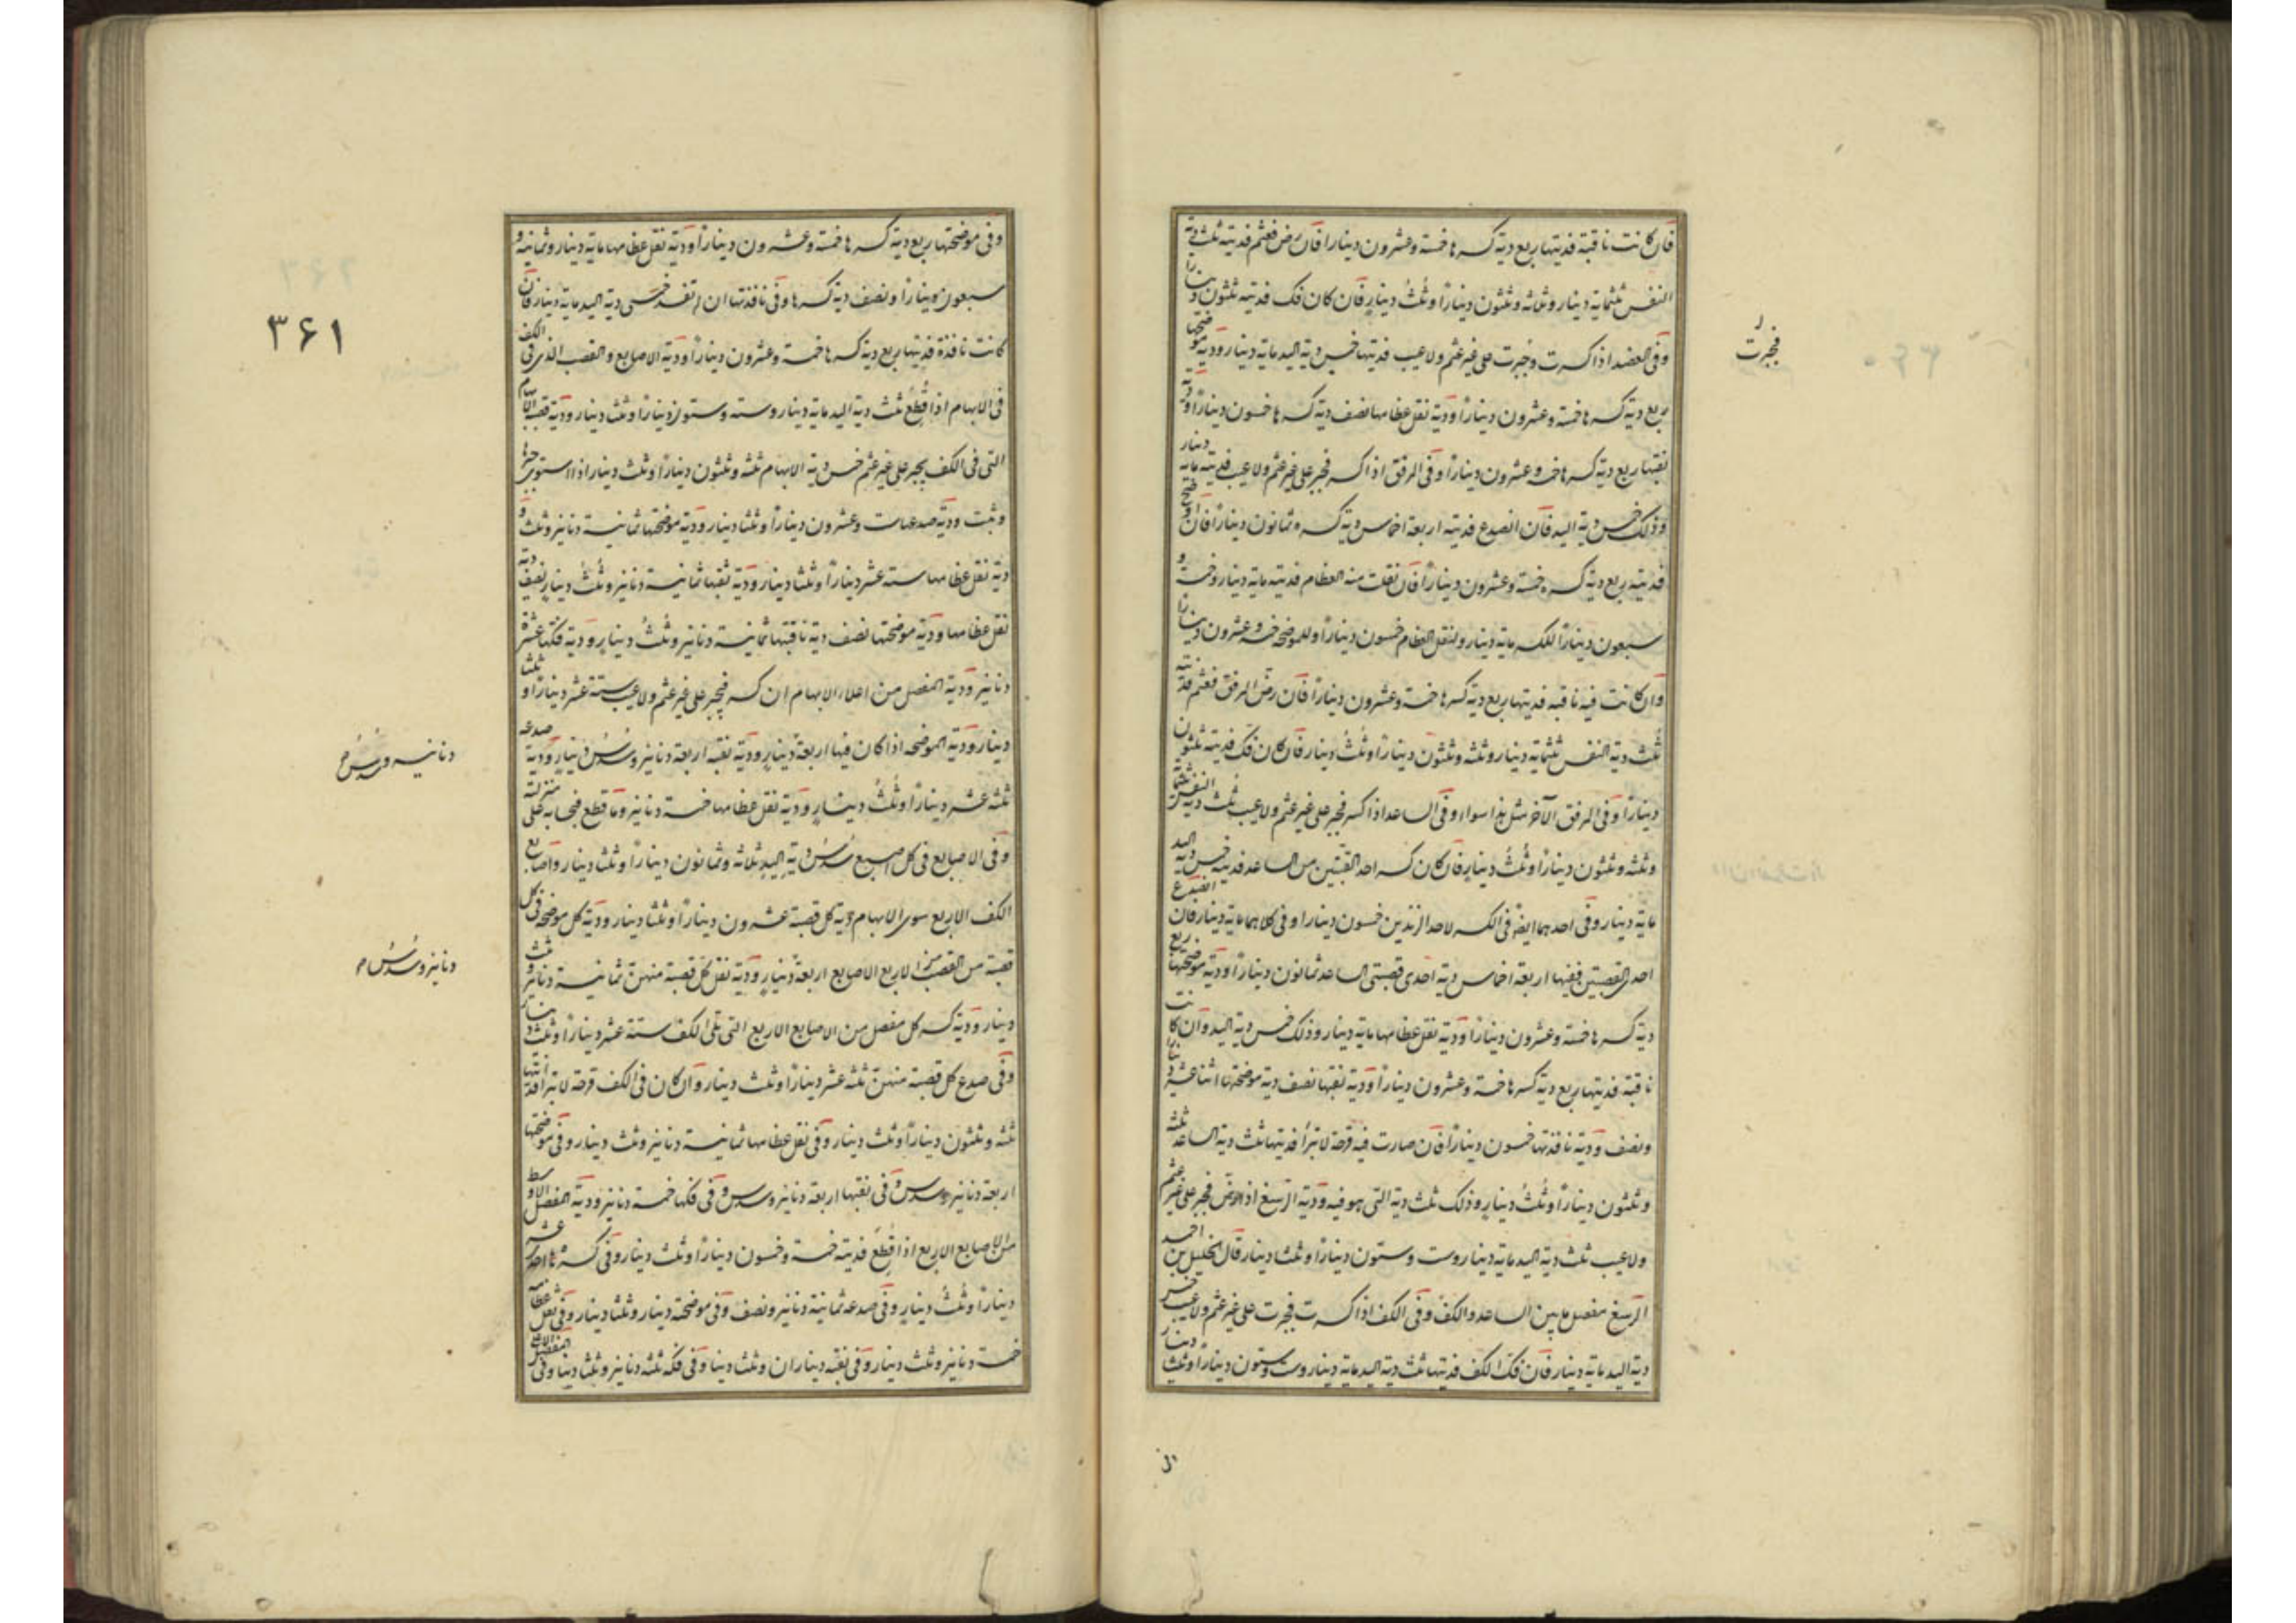 فان كانت ناقبة فديتها ربع دية كسرها خمسة وعشرون دينارا فان رض فعثم فديته ثلث دية
النفس ثلثماية دينار وثلثه وثلثون دينارًا وثُلثُ دينارٍ فان كان فك فديته ثلثون دينارا
وفى العضد اذا كسرت وجُبرت على غير عثم ولا عيب فديتها خمس دية اليد ماية دينار ودية موضحتها
ربع دية كسرها خمسة وعشرون دينارًا ودية نقل عظامها نصف دية كسرها خمسون دينارًا ودية
نقبها ربع دية كسرها خمسة وعشرون دينارًا وفى المرفق اذا كسر فجبر على غير عثم ولا عيب فديته ماية دينار
وذلك خمس دية اليد فان انصدع فديته اربعة اخماس دية كسره ثمانون دينارًا فان اوضح
فديته ربع دية كسره خمسة وعشرون دينارًا فان نقلت منه العظام فديته ماية دينار وخمسة و
سبعون دينارًا للكسر ماية دينار ولنقل العظام خمسون دينارًا وللموضحه خمسة وعشرون دينارا
وان كانت فيه ناقبه فديتها ربع دية كسرها خمسة وعشرون دينارًا فان رض المرفق فعثم فديته
ثُلث دية النفس ثلثماية دينار وثلثه وثلثون دينارًا وثُلثُ دينار فان كان فك فديته ثلثون
دينارًا وفى المرفق الآخر مثل هذا سواء وفى الساعد اذا كسر فجبر على غير عثم ولا عيب ثلث دية النفس ثلثماية
وثلثه وثلثون دينارًا وثُلثُ دينارٍ فان كان كسر احد القصبتين من الساعد فديته خمس دية اليد
ماية دينار وفى احدهما ايضا فى الكسر لاحد الزندين خمسون دينارا وفى كلاهما ماية دينار فان انصدع
احد القصبتين ففيها اربعة اخماس دية احدى قصبتى الساعد ثمانون دينارًا ودية موضحتها ربع
دية كسرها خمسة وعشرون دينارًا ودية نقل عظامها ماية دينار وذلك خمس دية اليد وان كانت
ناقبة فديتها ربع دية كسرها خمسة وعشرون دينارًا ودية نقبها نصف دية موضحتها اثنا عشر دينارا
ونصف ودية نافذتها خمسون دينارًا فان صارت فيه قرحة لا تبرأ فديتها ثلث دية الساعد ثلثه
وثلثون دينارًا وثُلثُ دينارٍ وذلك ثلث دية التى هو فيه ودية الرسغ اذا رض فجبر على غير عثم
ولا عيب ثلث دية اليد ماية دينار وست وستون دينارًا وثلثا دينار قال الخليل بن احمد
الرسغ مفصل ما بين الساعد والكف وفى الكف اذا كسرت فجبرت على غير عثم ولا عيب خمس
دية اليد ماية دينار فان فك الكف فديتها ثلث دية اليد ماية دينار وست وستون دينارًا وثلثا دينار
فجبرت
وفى موضحتها ربع دية كسرها خمسة وعشرون دينارًا ودية نقل عظامها ماية دينار وثمانية و
سبعون دينارًا ونصف دية كسرها وفى نافذتها ان لم تنسد خمسى دية اليد ماية دينار فان
كانت نافذة فديتها ربع دية كسرها خمسة وعشرون دينارًا ودية الاصابع والقصب الذى فى الكف
فى الابهام اذا قُطع ثلث دية اليد ماية دينار وستة وستون دينارًا وثلث دينار ودية قصبة الابهام
التى فى الكف يجبر على غير عثم خمس دية الابهام ثلثه وثلثون دينارًا وثلث دينار اذا استوى جبرها
وثبت ودية صدعها ست وعشرون دينارًا وثلثا دينار ودية موضحتها ثمانية دنانير وثلث و
دية نقل عظامها ستة عشر دينارًا وثلثا دينار ودية ثقبها ثمانية دنانير وثُلثُ دينارٍ نصف دية
نقل عظامها ودية موضحتها نصف دية ناقبتها ثمانية دنانير وثُلثُ دينارٍ ودية فكها عشرة
دنانير ودية المفصل من اعلاء الابهام ان كسر فجبر على غير عثم ولا عيب ستة عشر دينارًا وثلثا
دينار ودية الموضحه اذا كان فيها اربعة دنانير ودية نقبه اربعة دنانير وسُدسُ دينارٍ ودية صدعه
ثلثه عشر دينارًا وثُلثُ دينارٍ ودية نقل عظامها خمسة دنانير وما قطع فبحسابه على منزلته
وفى الاصابع فى كل اصبع سُدُس دية اليد ثلاثه وثمانون دينارًا وثلثا دينار واصابع
الكف الاربع سوى الابهام دية كل قصبة عشرون دينارًا وثلثا دينار ودية كل موضحه فى كل
قصبة من القصب الاربع الاصابع اربعة دنانير ودية نقل كل قصبة منهن ثمانية دنانير وثلث
دينار ودية كسر كل مفصل من الاصابع الاربع التى تلى الكف ستة عشر دينارًا وثلث دينار
وفى صدع كل قصبة منهن ثلثه عشر دينارًا وثلث دينار وان كان فى الكف قرحة لا تبرأ فديتها
ثلثه وثلثون دينارًا وثلث دينار وفى نقل عظامها ثمانية دنانير وثلث دينار وفى موضحتها
اربعة دنانير وسدس وفى نقبها اربعة دنانير وسدس وفى فكها خمسة دنانير ودية المفصل الاوسط
من الاصابع الاربع اذا قُطع فديته خمسة وخمسون دينارًا وثلث دينار وفى كسرها احد عشر
دينارًا وثُلثُ دينارٍ وفى صدعه ثمانية دنانير ونصف وفى موضحته دينار وثلثا دينار وفى نقل عظامه
خمسة دنانير وثلث دينار وفى نقبه ديناران وثلث دينار وفى فكه ثلثه دنانير وثلثا دينار وفى المفصل الاعلى
٣۶١
دنانير وسُدُس
دنانير وسُدُس